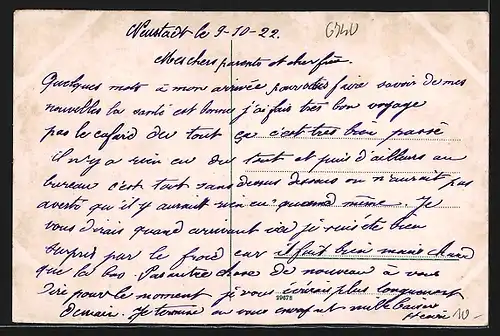 Neustadt le 9-10-22.
Mes chers parents et cher frère
Quelques mots à mon arrivée pour vous faire savoir de mes
nouvelles la santé est bonne j'ai fais très bon voyage
pas le cafard du tout ça c'est très bien passé
il n'y a rien eu du tout et puis d'ailleurs au
bureau c'est tout sans dessus dessous on n'aurait pas
averti qu'il y aurait rien eu quand même. Je
vous dirais quand arrivant ici je suis de bien
surpris par le froid car il fait bien moins chaud
que là bas. Pas autre chose de nouveau à vous
dire pour le moment je vous écrirais plus longuement
demain. Je termine en vous envoyant mille baisers
Henri
29678
10-